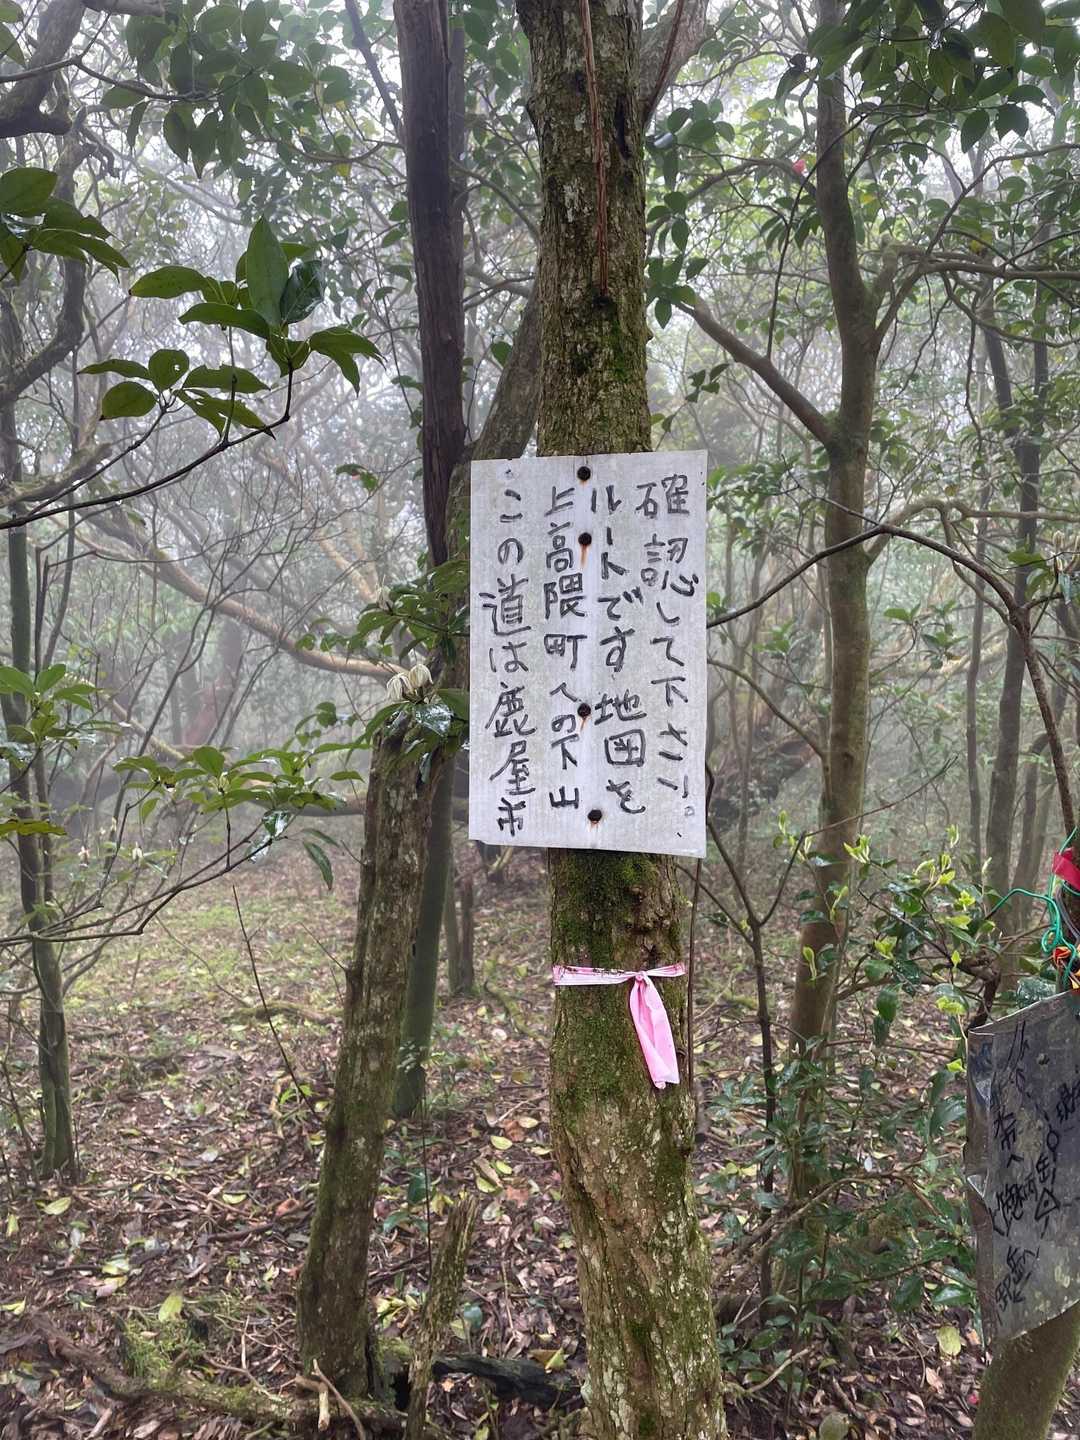 この道は鹿屋市
上高隈町への下山
ルートです地図を
確認して下さい。